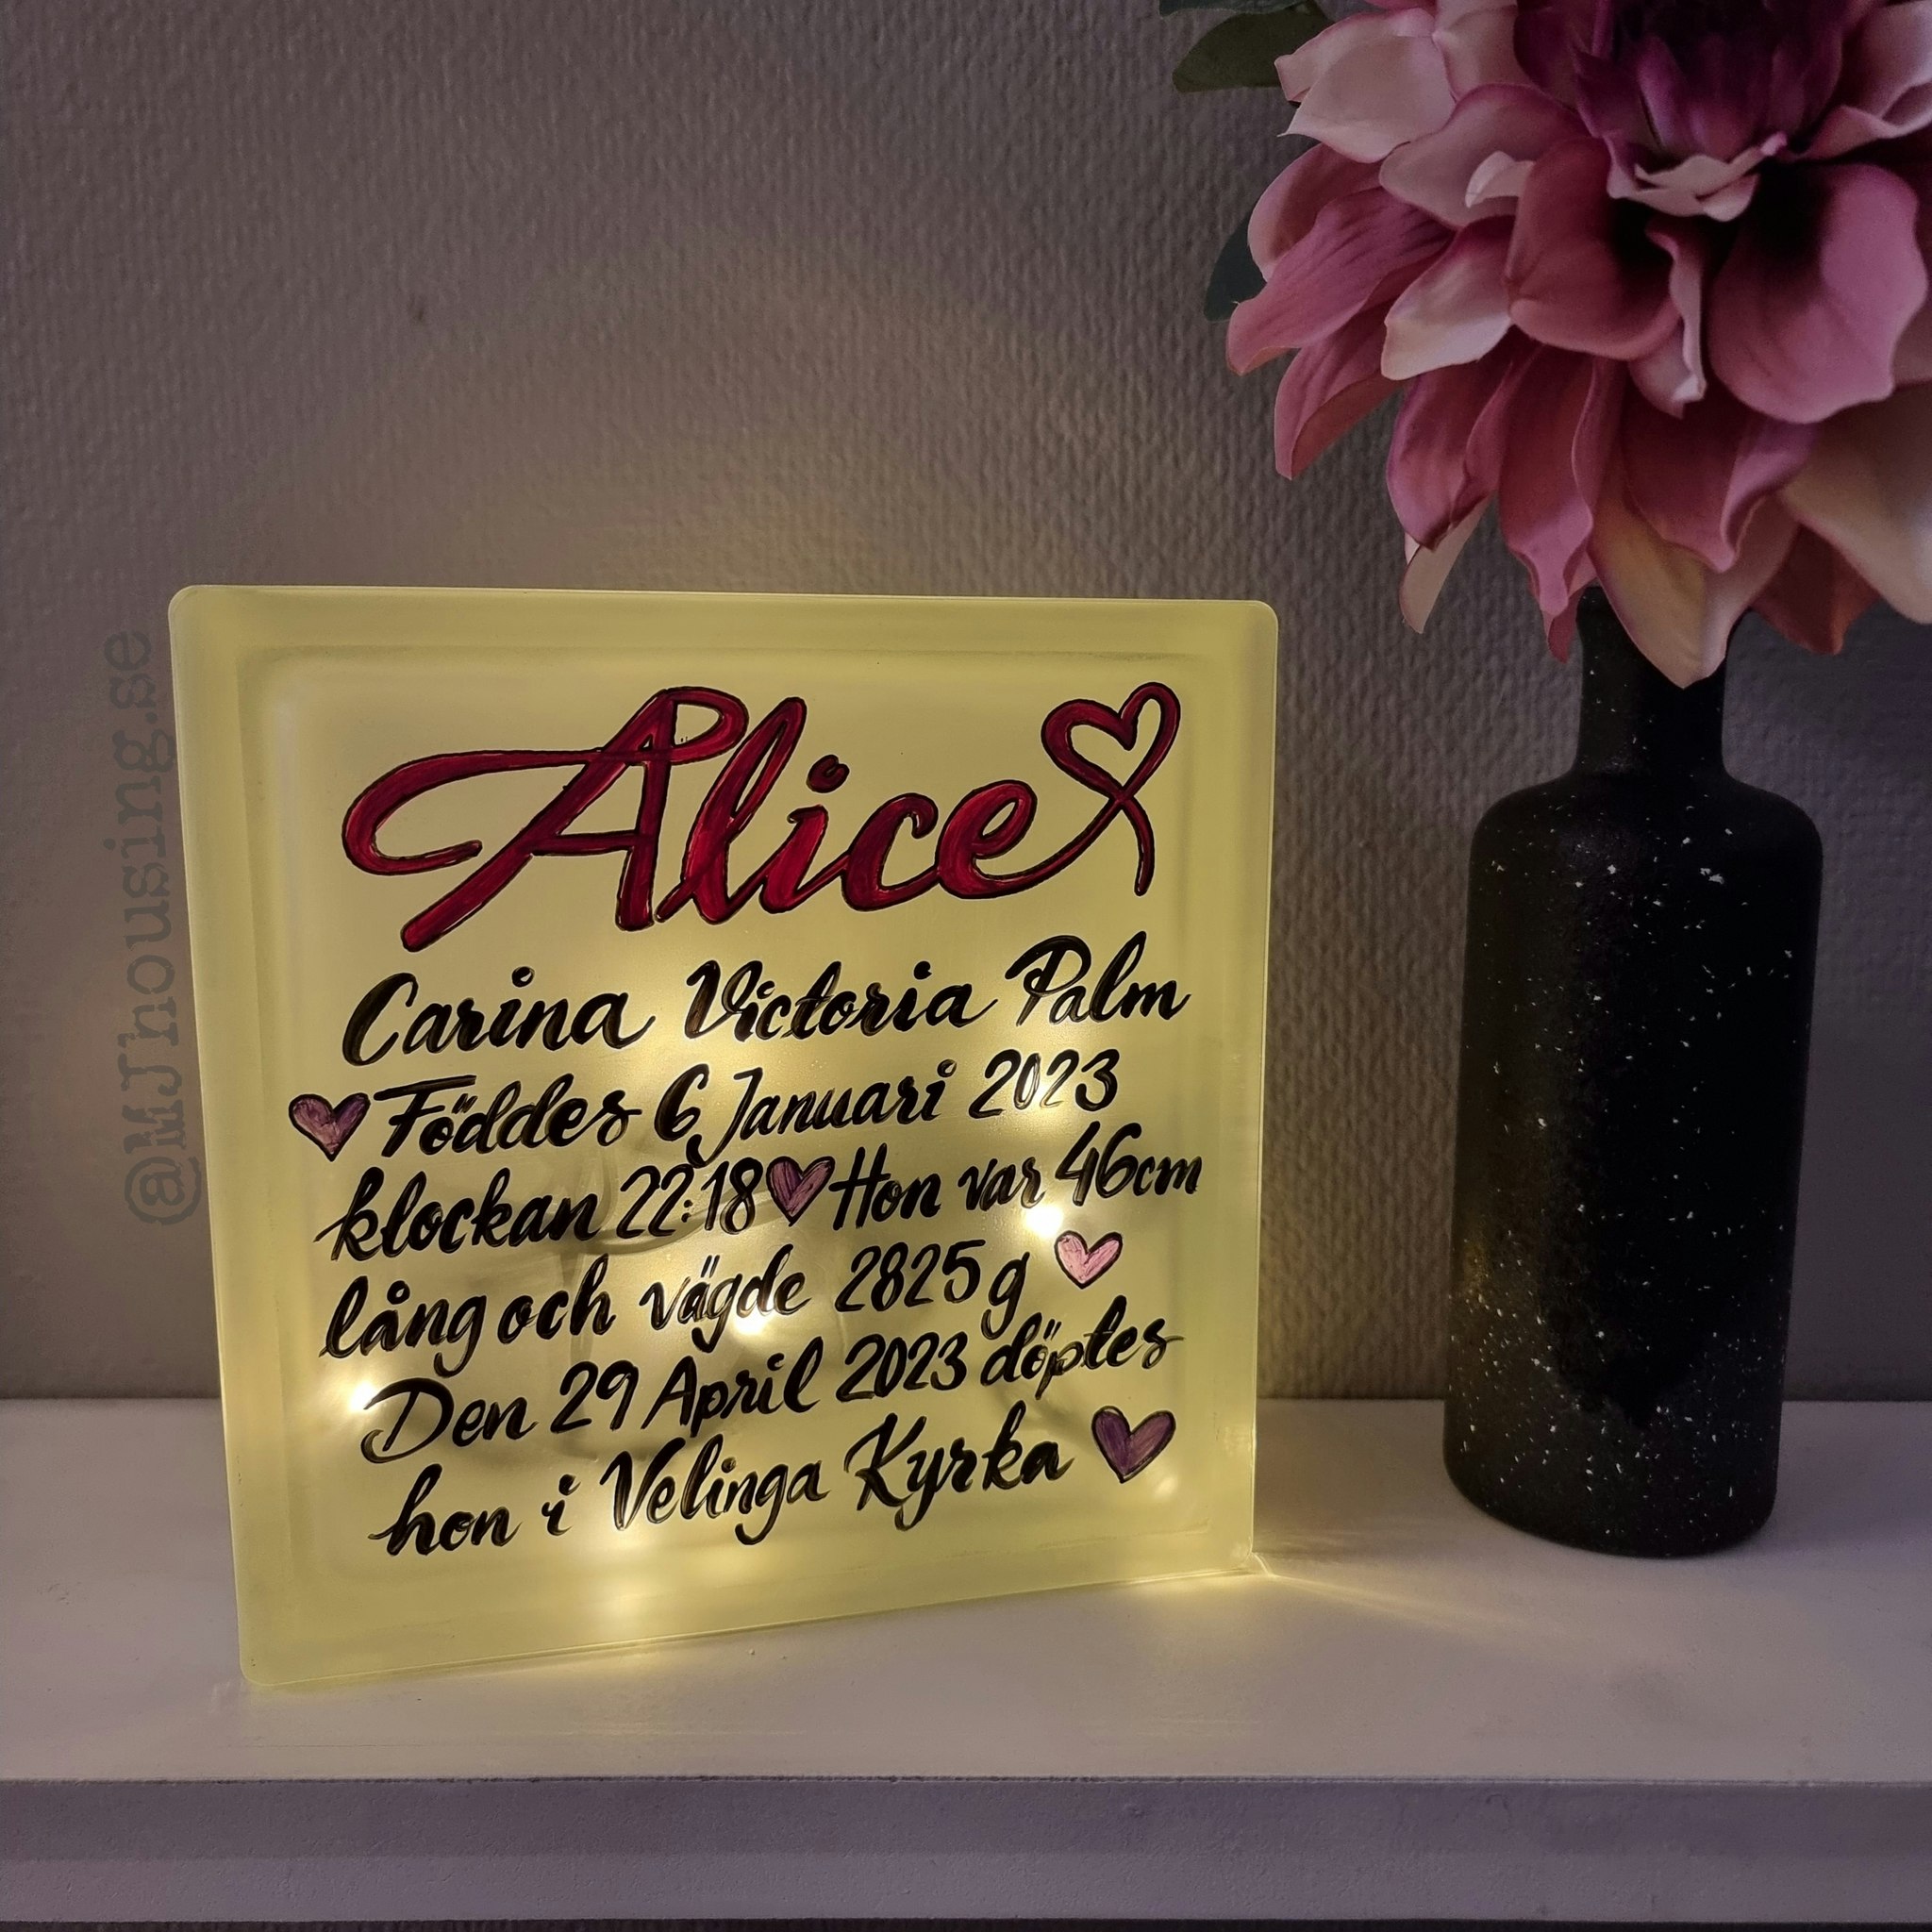 Alice
Carina Victoria Palm
Föddes 6 Januari 2023
klockan 22:18 Hon var 46cm
lång och vägde 2825 g
Den 29 April 2023 döptes
hon i Velinga Kyrka
@MJ'housing.se